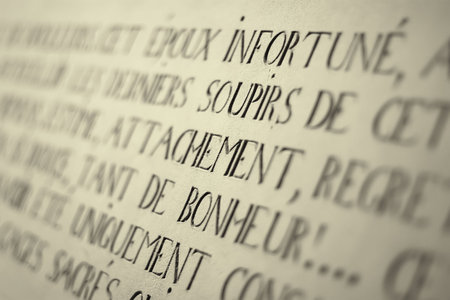 CET ÉPOUX INFORTUNÉ, A
LES DERNIERS SOUPIRS DE CET
ESTIME, ATTACHEMENT, REGRET
TANT DE BONHEUR!.... CE
ÉTÉ UNIQUEMENT CONS
GAGES SACRÉS QUI